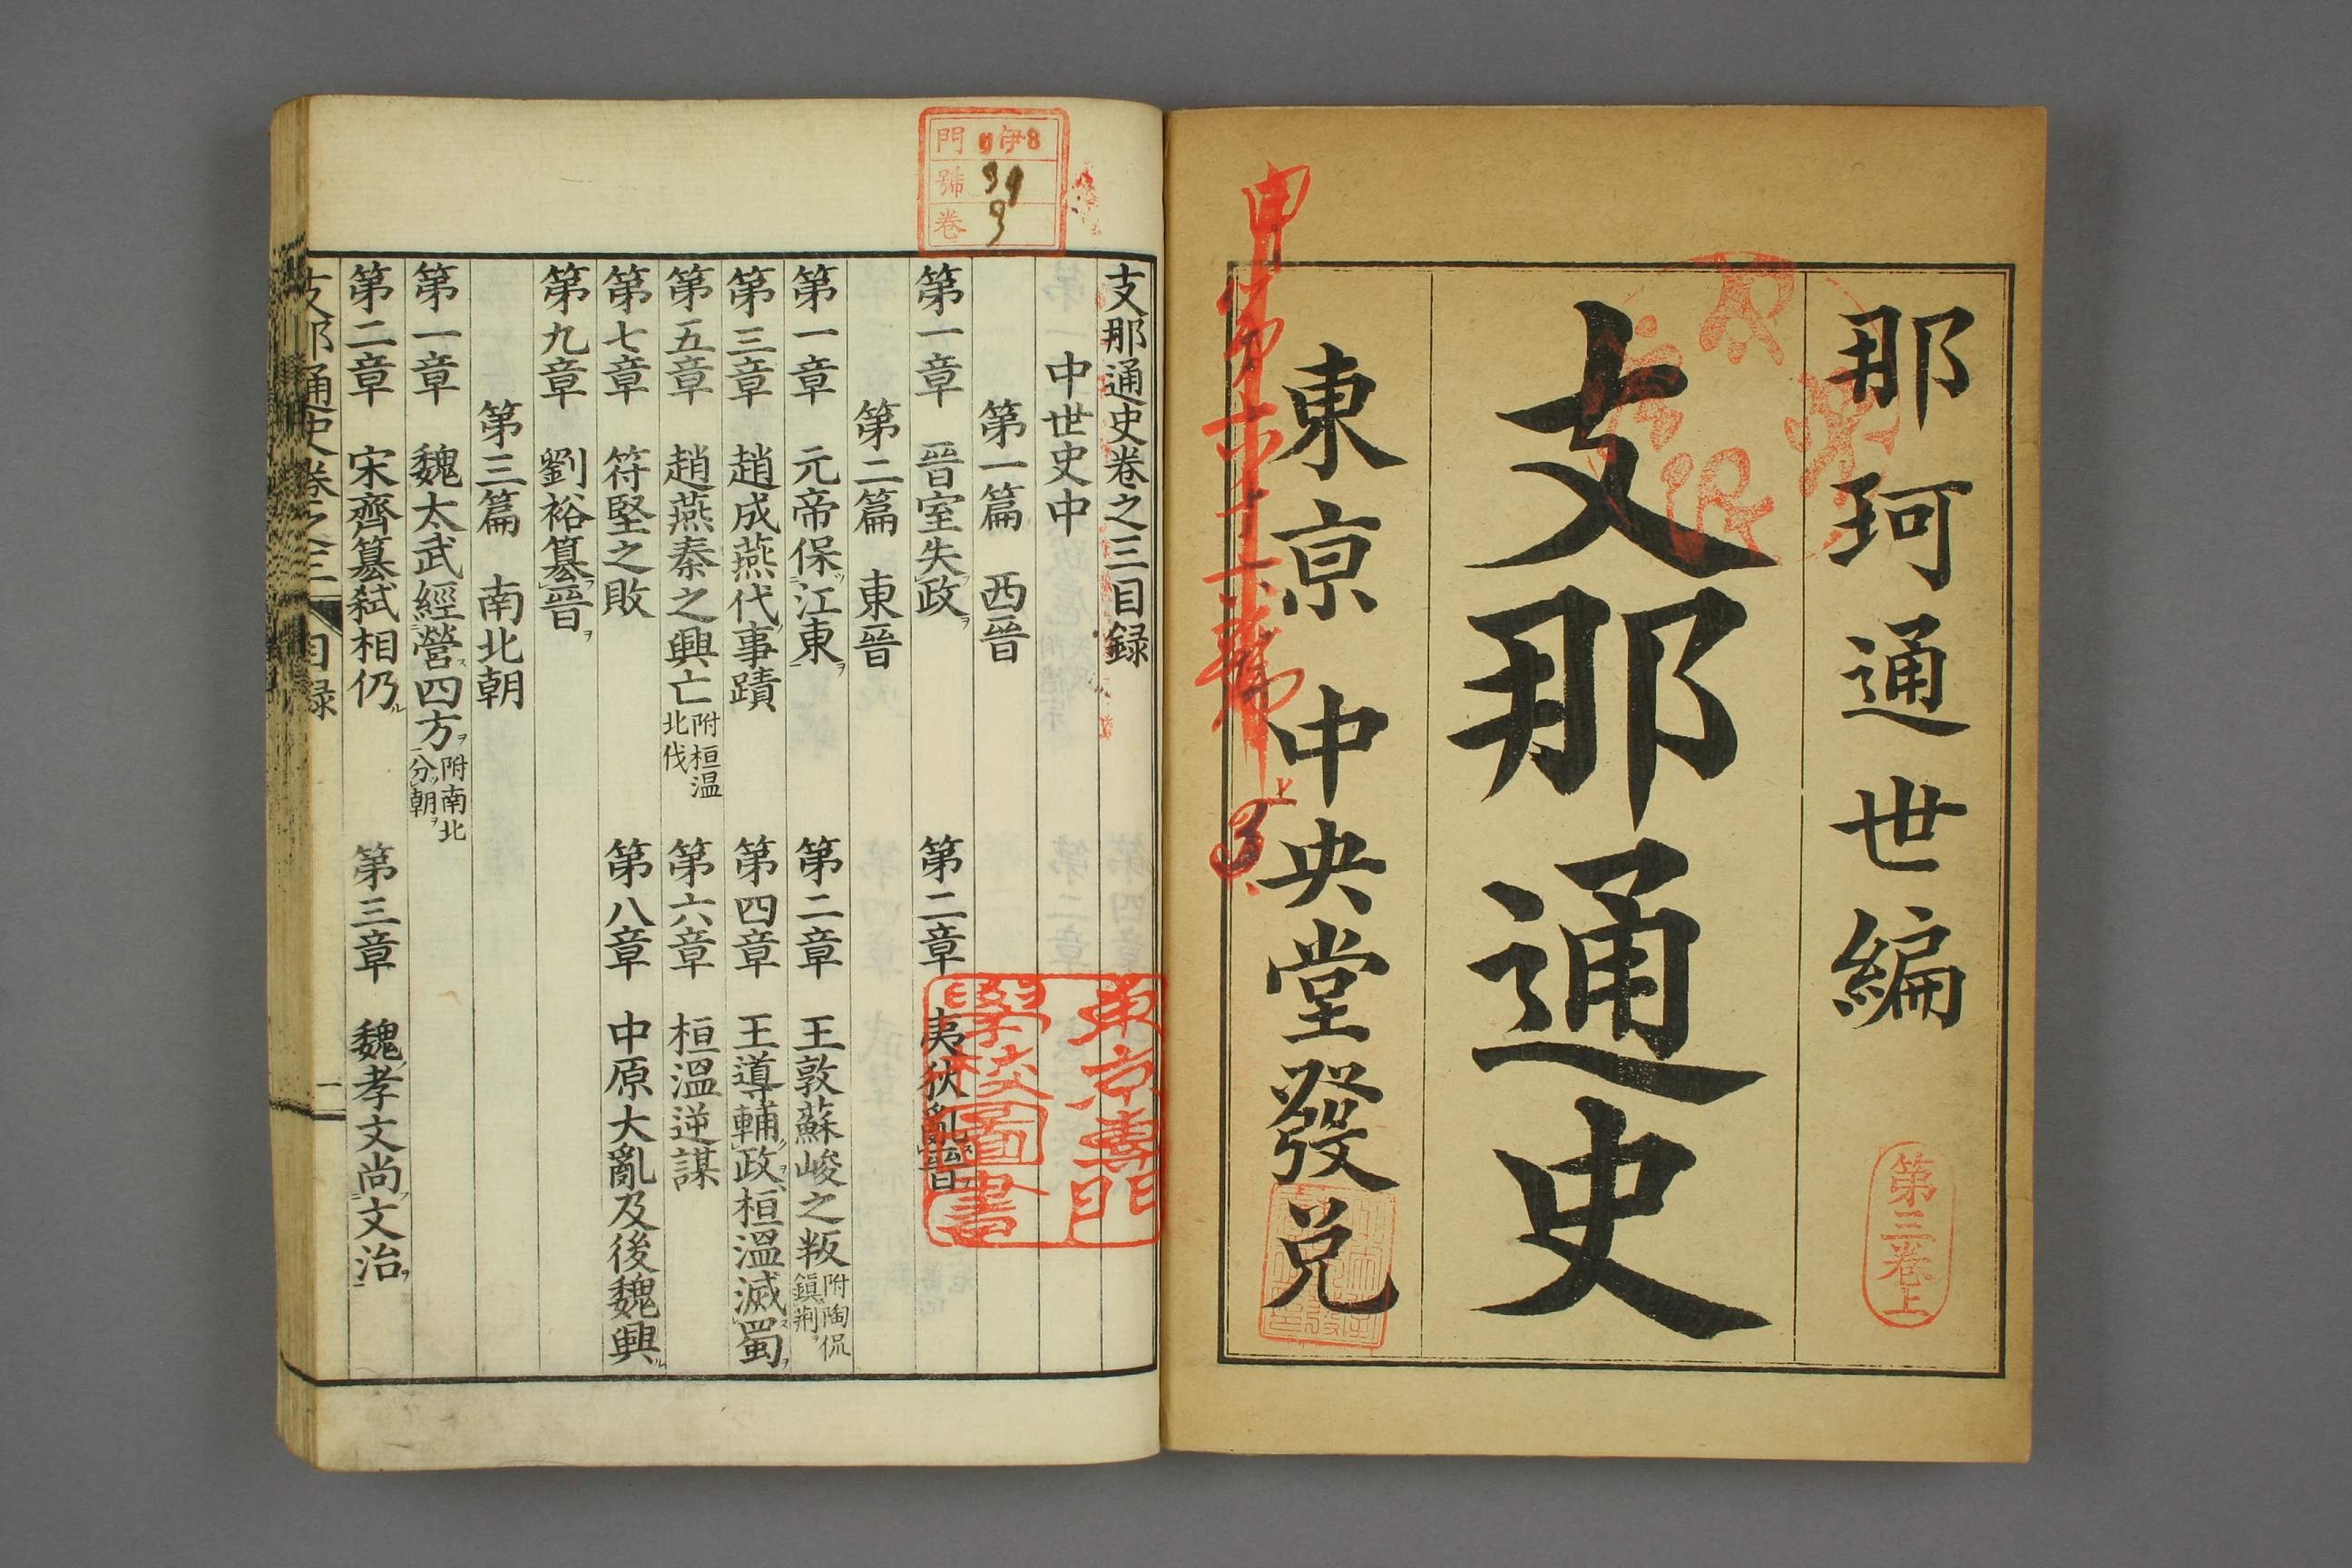 那珂通世編
支那通史
東京 中央堂發兌
第三卷上
門 伊8
號 39
卷 3
支那通史卷之三目録
中世史中
第一篇 西晉
第一章 晉室失政ヲ 第二章 夷狄亂晉ヲ
第二篇 東晉
第一章 元帝保江東ヲ 第二章 王敦蘇峻之叛 附陶侃鎭荊ヲ
第三章 趙成燕代事蹟 第四章 王導輔政ヲ桓溫滅蜀ヲ
第五章 趙燕秦之興亡 附桓温北伐 第六章 桓溫逆謀
第七章 符堅之敗 第八章 中原大亂及後魏興ル
第九章 劉裕簒晉ヲ
第三篇 南北朝
第一章 魏太武經營ス四方ヲ 附南北分朝ヲ
第二章 宋齊簒弑相仍ル 第三章 魏孝文尚文治ヲ
支那通史卷之三 目録 一
東京專門
學校圖書